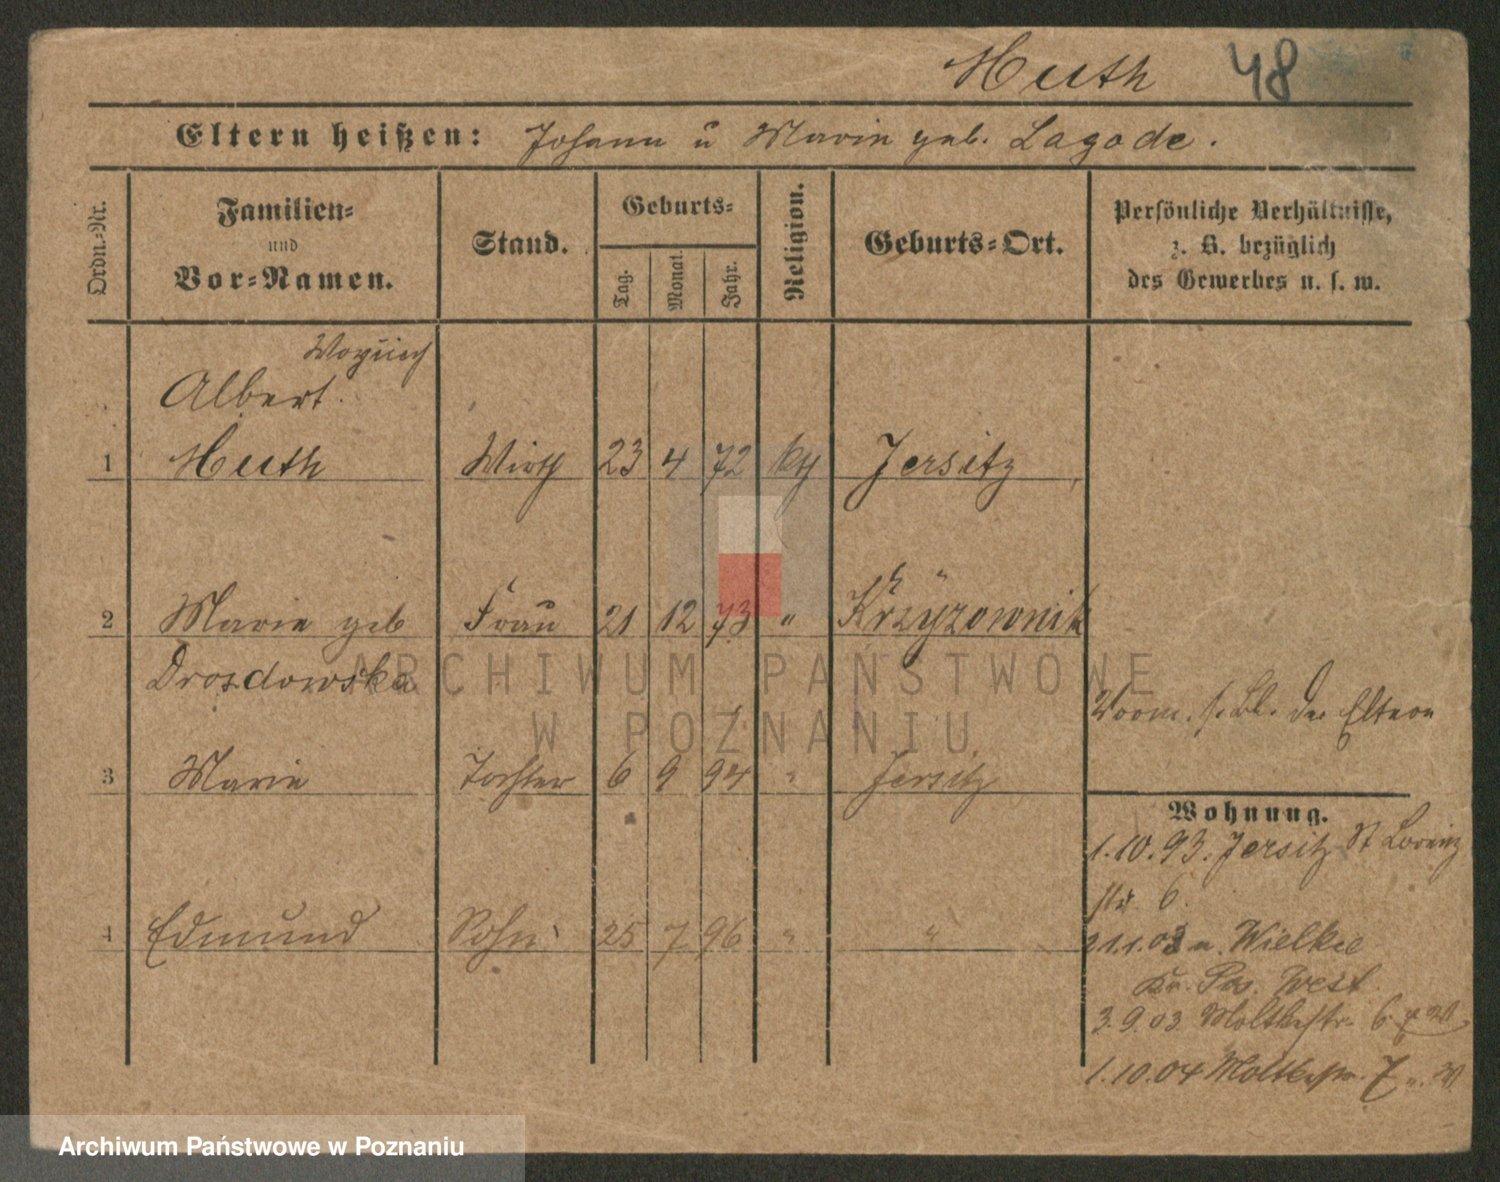 Huth 48
Eltern heißen: Johann u Marie geb. Lagode.
Ordn.-Nr.
Familien-
und
Vor-Namen.
Stand.
Geburts-
Tag.
Monat.
Jahr.
Religion.
Geburts-Ort.
Persönliche Verhältnisse,
z. B. bezüglich
des Gewerbes u. s. w.
Albert
1 Huth Wirth 23 4 72 kth Jersitz
2 Marie geb Frau 21 12 73 " Krzyzownik
Drosdowska
Vorm. s. Bl. der Eltern
3 Marie Tochter 6 9 94 " Jersitz
Wohnung.
1.10.93. Jersitz St Lorenz
str 6.
4 Edmund Sohn 25 7 96 " "
n. Wielkie
Kr. Pos. West
3.9.03 Moltkestr. 6
1.10.04 Moltkestr. 7
ARCHIWUM PAŃSTWOWE
W POZNANIU
Archiwum Państwowe w Poznaniu